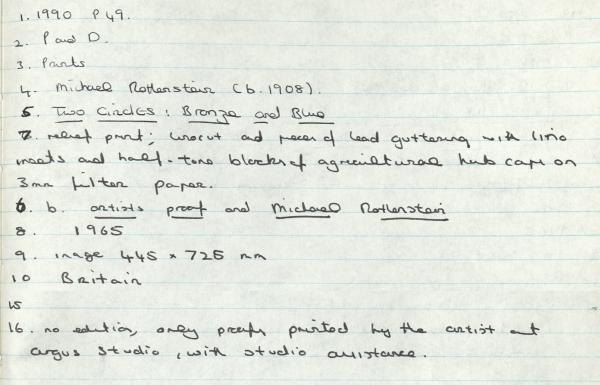 1. 1990 P49.
2. P and D.
3. Prints
4. Michael Rothenstein (b.1908).
5. Two Circles: Bronze and Blue
7. relief print; linocut and pieces of lead guttering with lino
insets and half-tone blocks of agricultural hub caps on
3mm filter paper.
6. b. artists proof and Michael Rothenstein
8. 1965
9. image 445 x 725 mm
10 Britain
15
16. no edition, only proofs, printed by the artist at
argus studio, with studio assistance.